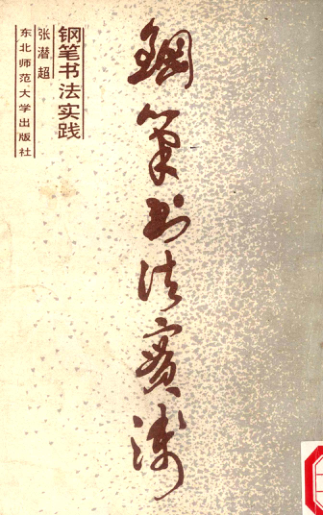 鋼筆书法實践
钢笔书法实践
张潜超
东北师范大学出版社